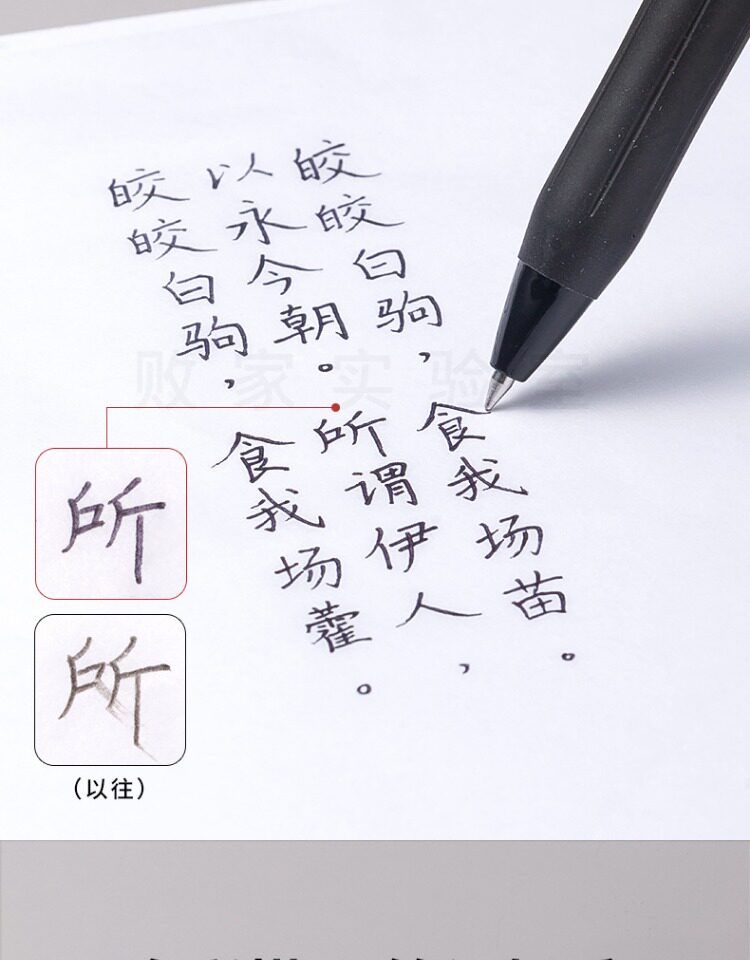 皎皎白驹，食我场苗。
以永今朝。所谓伊人，
皎皎白驹，食我场藿。
败家实验室
所
所
（以往）